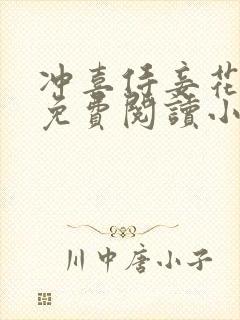 冲喜侍妾花
免費閱讀小
川中唐小子